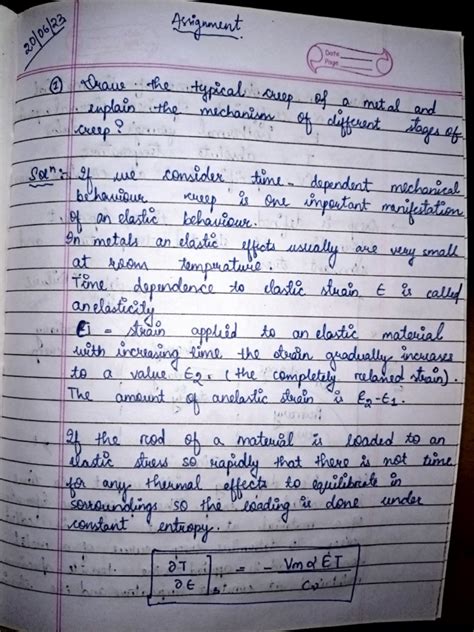 20/06/23
Assignment
Date
Page
① Draw the typical creep of a metal and
explain the mechanism of different stages of
creep?
Solⁿ:- If we consider time-dependent mechanical
behaviour creep is one important manifestation
of an elastic behaviour.
In metals an elastic effects usually are very small
at room temperature.
Time dependence to elastic strain ϵ is called
anelasticity
ϵ1 - strain applied to an elastic material
with increasing time the strain gradually increases
to a value ϵ2. (the completely relaxed strain).
The amount of anelastic strain is ϵ2-ϵ1.
If the rod of a material is loaded to an
elastic stress so rapidly that there is not time
for any thermal effects to equilibrate in
sorroundings so the loading is done under
constant entropy.
[∂T/∂ϵ]s = - Vm α ET / Cv